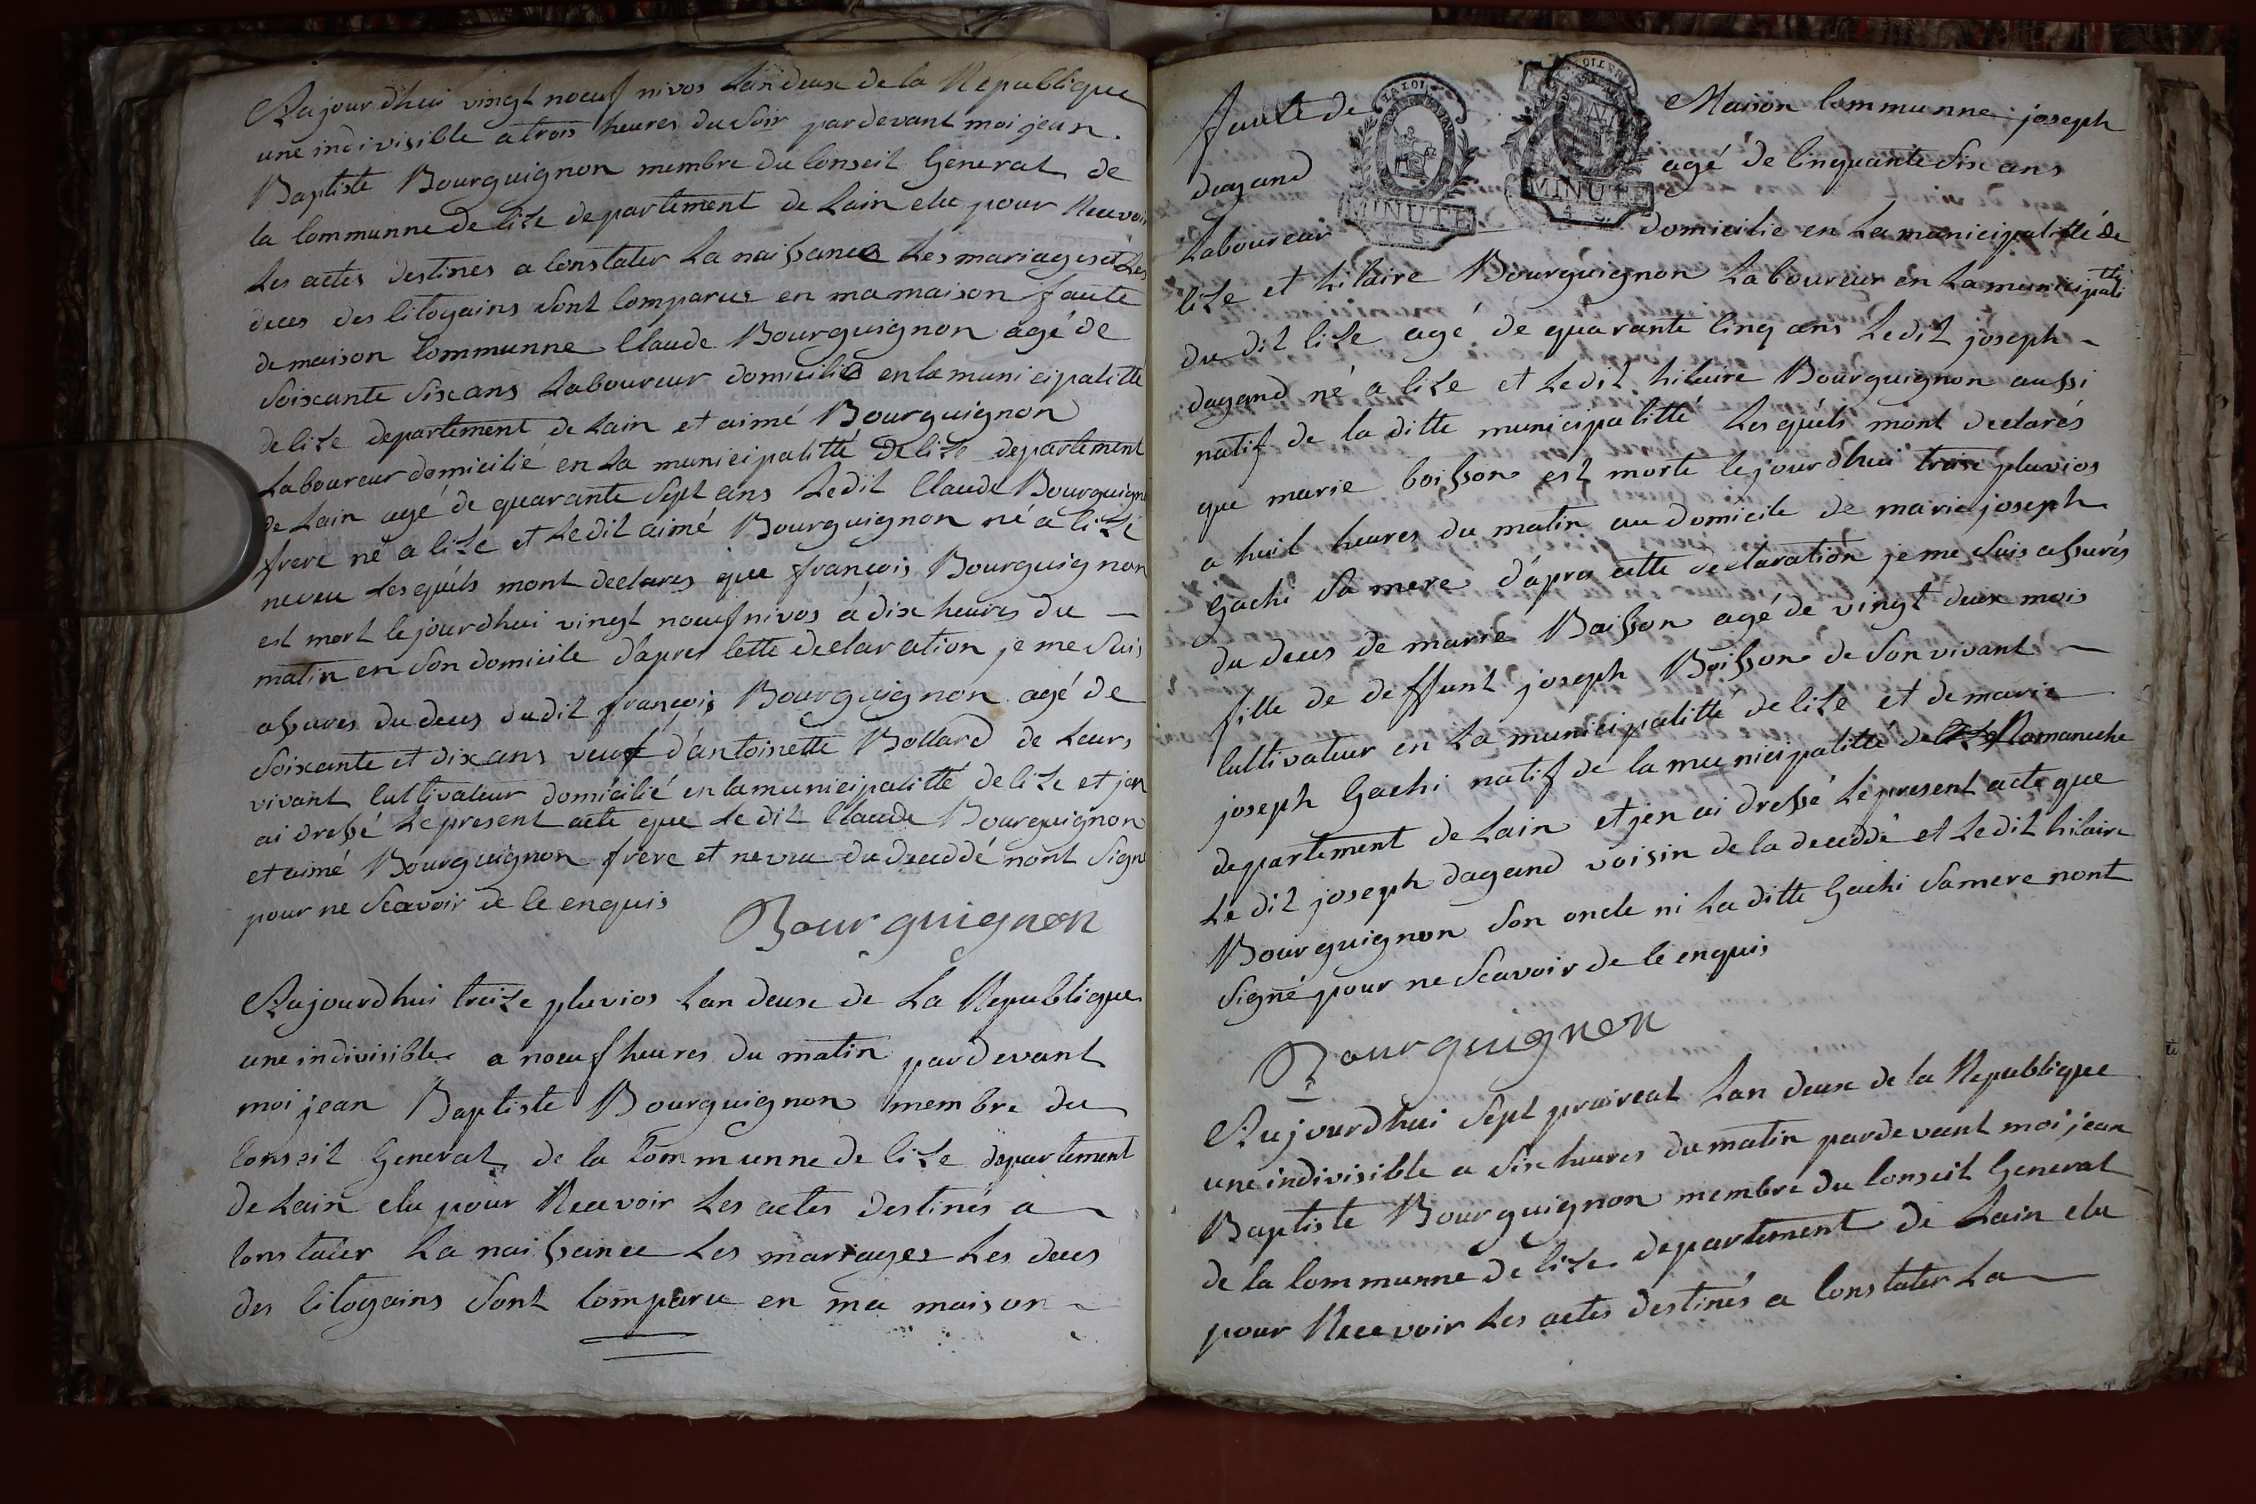 Aujourdhui vingt noeuf nivos Lan deux de la Republique
une indivisible a trois heures du Soir pardevant moi jean
Baptiste Bourguignon membre du Conseil General de
la Communne de Cize departement de Lain elu pour Recevoir
Les actes destines a Constater La naissance Les mariages et Les
deces des Citoyains Sont Comparus en ma maison faute
de maison Communne Claude Bourguignon agé de
Soixante Six ans Laboureur domicilié en la municipalitté
de Cize departement de Lain et aimé Bourguignon
Laboureur domicilié en La municipalitté de Cize departement
de Lain agé de quarante Sept ans Ledit Claude Bourguignon
frere né a Cize et Ledit aimé Bourguignon né a Cize
neveu Lesquéls mont declares que françois Bourguignon
est mort lejourdhui vingt noeuf nivos a dix heures du
matin en Son domicile d'apres Cette declaration je me Suis
assures du deces dudit françois Bourguignon agé de
Soixante et dix ans veuf d'antoinette Bollard de Leurs
vivant Cultivateur domicilié en la municipalitté de Cize et jen
ai dressé Lepresent acte que Ledit Claude Bourguignon
et aimé Bourguignon frere et neveu du deceddé nont Signé
pour ne Scavoir de Ce enquis
Bourguignon
Aujourdhui treize pluvios Lan deux de La Republique
une indivisible a noeuf heures du matin pardevant
moi jean Baptiste Bourguignon membre du
Conseil General de la Communne de Cize departement
de Lain elu pour Recevoir Les actes destinés a
Constater La naissance Les mariages Les deces
des Citoyains Sont Comparu en ma maison
faute de Maison Communne joseph
dagand agé de Cinquante Six ans
LA LOI
MINUTE
MINUTE
Laboureur domicilie en La municipalitté de
Cize et hilaire Bourguignon Laboureur en La municipalitté
du dit Cize agé de quarante Cinq ans Ledit joseph
dagand né a Cize et Ledit hilaire Bourguignon aussi
natif de la ditte municipalitté Lesquéls mont declarés
que marie boisson est morte lejourdhui treize pluvios
a huit heures du matin au domicile de marie joseph
Gachi Sa mere d'apres cette declaration je me Suis assurés
du deces de marie Boisson agé de vingt deux mois
fille de deffunt joseph Boisson de Son vivant
Cultivateur en La municipalitté de Cize et de marie
joseph Gachi natif de la municipalitté de Romaneche
departement de Lain et jen ai dressé Le present acte que
Le dit joseph dagand voisin de la deceddé et Le dit hilaire
Bourguignon Son oncle ni La ditte Gachi Samere nont
Signé pour ne Scavoir de Ce enquis
Bourguignon
Aujourdhui Sept praireal Lan deux de la Republique
une indivisible a Six heures du matin pardevant moi jean
Baptiste Bourguignon membre du Conseil General
de la Communne de Cize departement de Lain elu
pour Recevoir Les actes destinés a Constater La